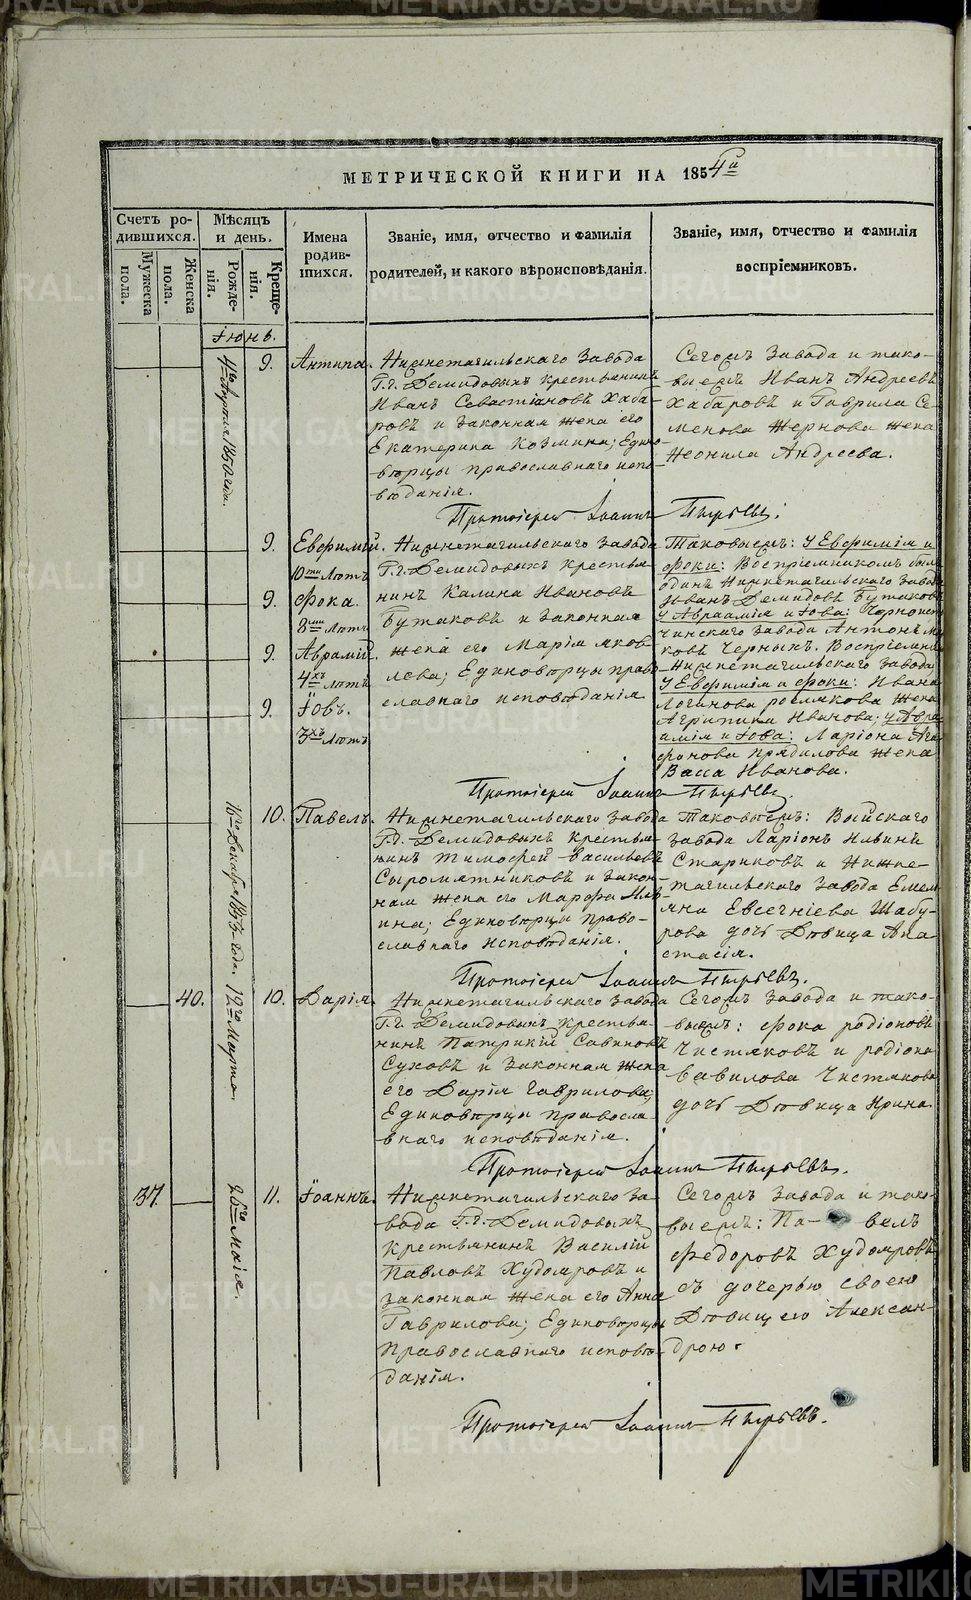 МЕТРИЧЕСКОЙ КНИГИ НА 1854й
Счетъ родившихся.
Мужеска пола.
Женска пола.
Мѣсяцъ и день.
Рожденія.
Крещенія.
Имена родившихся.
Званіе, имя, отчество и фамилія
родителей, и какого вѣроисповѣданія.
Званіе, имя, отчество и фамилія
воспріемниковъ.
Іюнь.
4го Апреля 1850 года.
9.
Антипа.
Нижнетагильскаго завода
Г.г. Демидовыхъ крестьянинъ
Иванъ Севастіановъ Хаба-
ровъ и законная жена его
Екатерина Козмина; Едино-
вѣрцы православнаго испо-
вѣданія.
Сегожъ завода и тако-
выежъ Иванъ Андреевъ
Хабаровъ и Гаврила Се-
менова Жернова жена
Неонила Андреева.
Протоіерей Іоаннъ Пырьевъ.
9.
Евфимий.
10ти Лѣтъ
9.
Фока.
8ми Лѣтъ
9.
Аврамій.
4хъ Лѣтъ
9.
Іовъ.
3хъ Лѣтъ
Нижнетагильскаго завода
Г.г. Демидовыхъ крестья-
нинъ Калина Ивановъ
Бутаковъ и законная
жена его Марія Яков-
лева; Единовѣрцы право-
славнаго исповѣданія
Таковыежъ: У Евфимія и
Фоки: Воспріемникомъ былъ
одинъ Нижнетагильскаго завода
Иванъ Демидовъ Бутаковъ
У Авраамія и Іова: Черноисто-
чинскаго завода Антонъ
ковъ Черныхъ. Воспріемницы
Нижнетагильскаго завода
У Евфимія и Фоки: Ивана
Логинова жена
Агрипина Иванова; у Авра-
амія и Іова: Ларіона Ага-
фонова Прядилова жена
Васса Иванова.
Протоіерей Іоаннъ Пырьевъ.
16го Декабря 1853 года.
10.
Павелъ.
Нижнетагильскаго завода
Г.г. Демидовыхъ крестья-
нинъ Тимофей Васильевъ
Сыромятниковъ и закон-
ная жена его Марфа Иль-
ина; Единовѣрцы право-
славнаго исповѣданія.
Таковыежъ: Войскаго
завода Ларіонъ Ильинъ
Стариковъ и Нижне-
тагильскаго завода Емель-
яна Евсегніева Шабу-
рова дочь Дѣвица Ана-
стасія.
Протоіерей Іоаннъ Пырьевъ.
40.
12го Марта.
10.
Дарія.
Нижнетагильскаго завода
Г.г. Демидовыхъ крестья-
нинъ Патрикій Савиновъ
Суховъ и законная жена
его Дарія Гаврилова;
Единовѣрцы правосла-
внаго исповѣданія.
Сегожъ завода и тако-
выежъ: Фока Родіоновъ
Чистяковъ и Родіона
Вавилова Чистякова
дочь Дѣвица Ирина
Протоіерей Іоаннъ Пырьевъ.
37.
26го Маія.
11.
Іоаннъ.
Нижнетагильскаго за-
вода Г.г. Демидовыхъ
крестьянинъ Василій
Павловъ Худояровъ и
законная жена его Анна
Гаврилова; Единовѣрцы
Православнаго исповѣ-
данія.
Сегожъ завода и тако-
выежъ: Па- велъ
Федоровъ Худояровъ
съ дочерью своею
Дѣвицею Алексан-
дрою.
Протоіерей Іоаннъ Пырьевъ.
METRIKI.GASO-URAL.RU